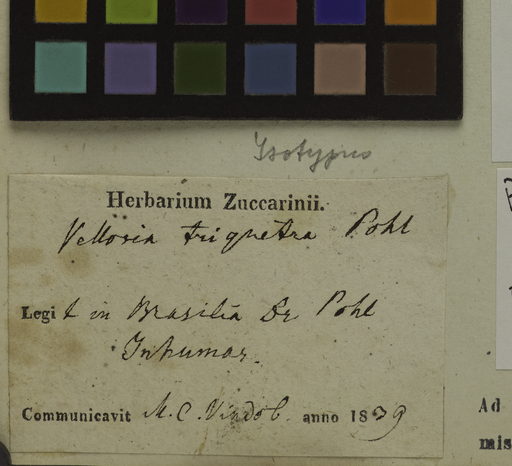 Isotypus
Herbarium Zuccarinii.
Vellosia triquetra Pohl
Legit in Brasilia Dr Pohl
Inhumas.
Communicavit M. C. Vindob. anno 1839
Ad
mis